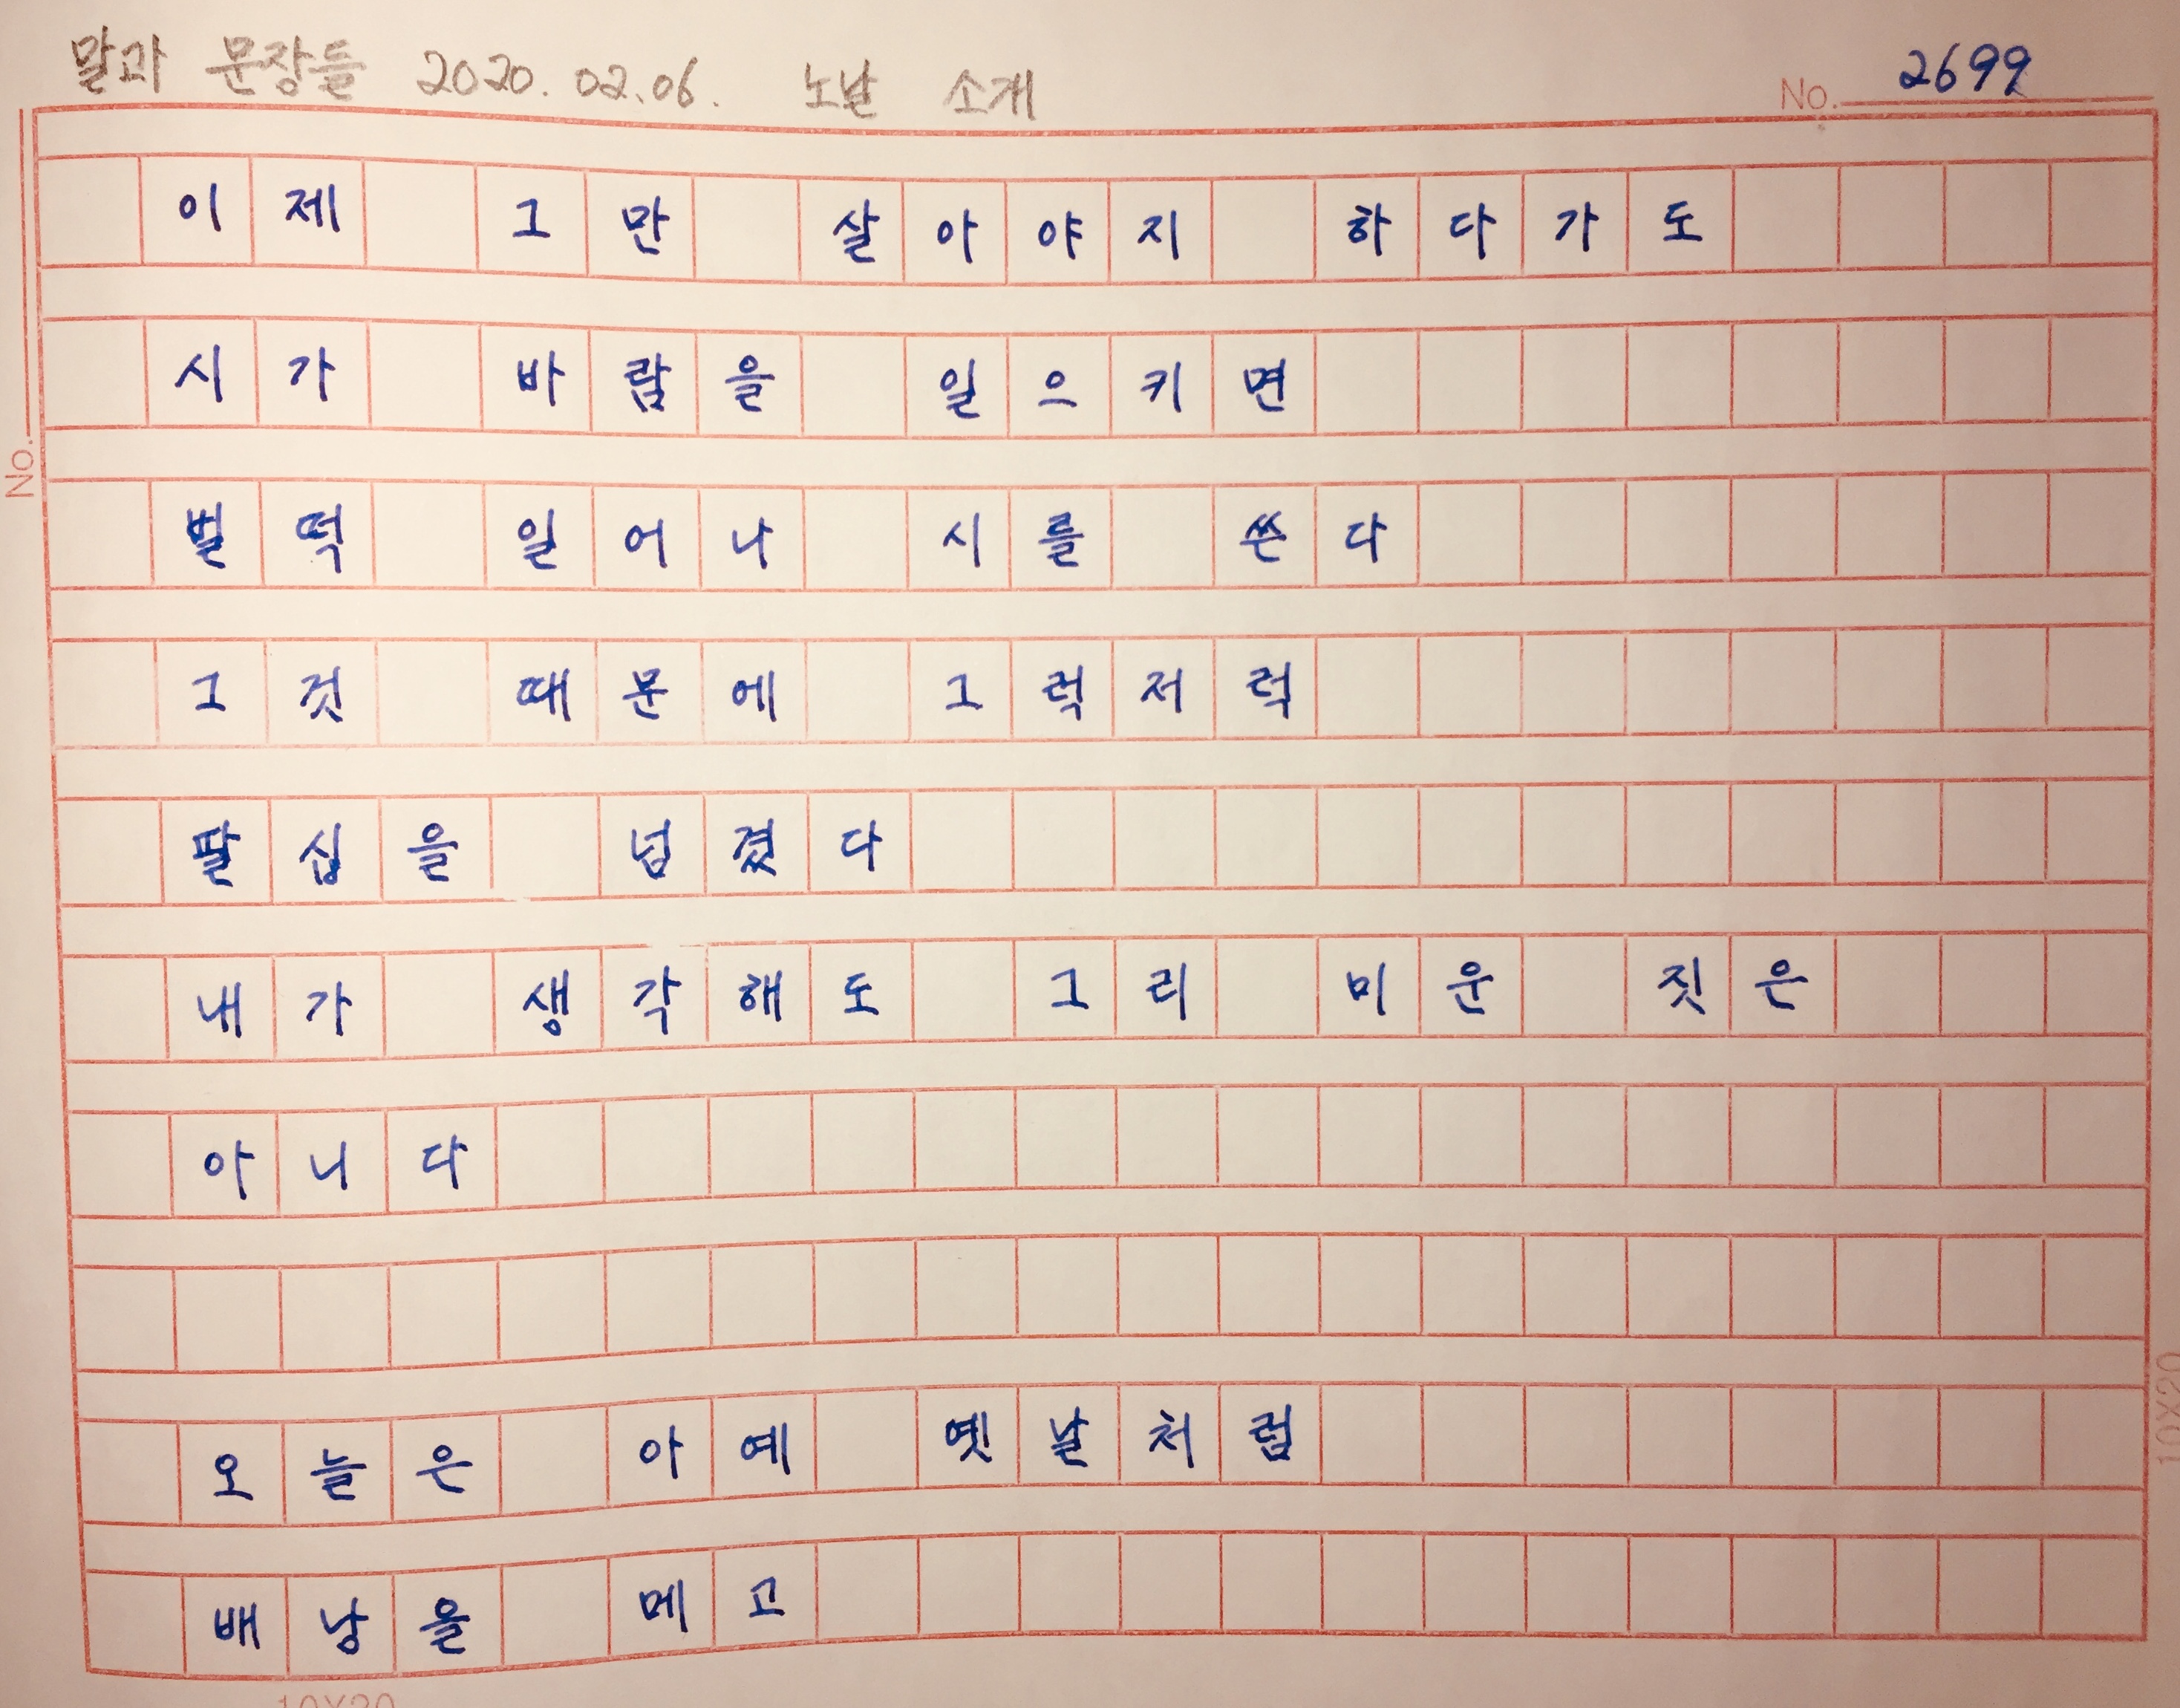 말과 문장들 2020.02.06. 노날 소개
No. 2699
이제 그만 살아야지 하다가도
시가 바람을 일으키면
벌떡 일어나 시를 쓴다
그것 때문에 그럭저럭
팔십을 넘겼다
내가 생각해도 그리 미운 짓은
아니다
오늘은 아예 옛날처럼
배낭을 메고
No.
10X20
10X20